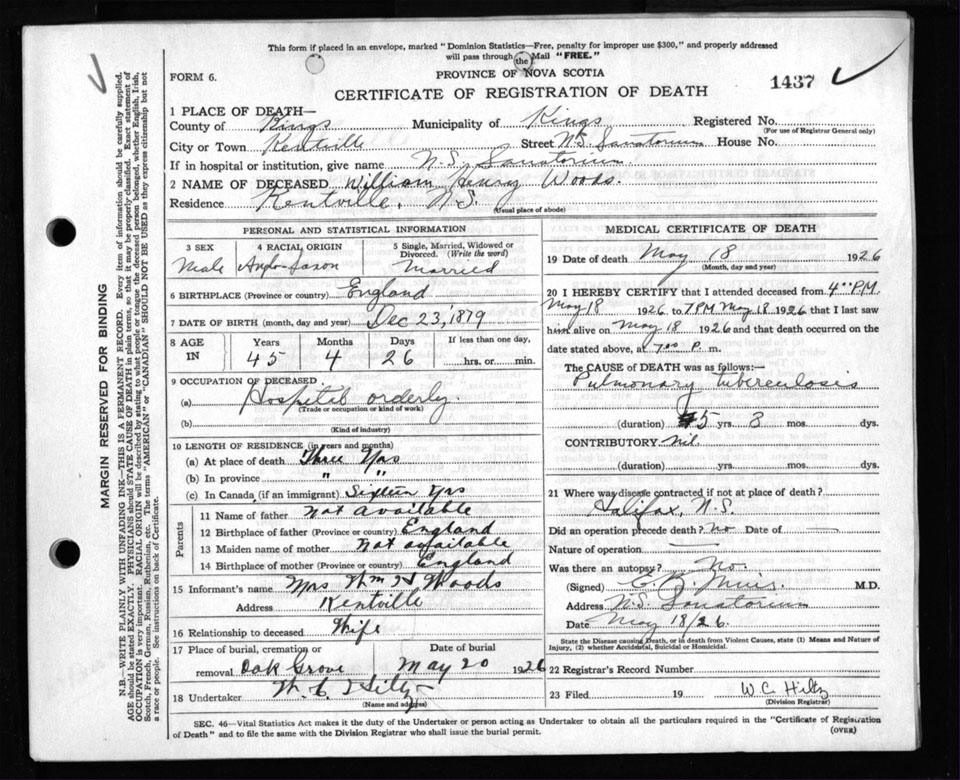 This form if placed in an envelope, marked "Dominion Statistics—Free, penalty for improper use $300," and properly addressed
will pass through the Mail "FREE."
FORM 6.
PROVINCE OF NOVA SCOTIA
1437
CERTIFICATE OF REGISTRATION OF DEATH
1 PLACE OF DEATH—
County of Kings Municipality of Kings Registered No.
(For use of Registrar General only)
City or Town Kentville Street N.S. Sanatorium House No.
If in hospital or institution, give name N.S. Sanatorium.
2 NAME OF DECEASED William Henry Woods.
Residence Kentville, N.S.
(Usual place of abode)
PERSONAL AND STATISTICAL INFORMATION
3 SEX 4 RACIAL ORIGIN 5 Single, Married, Widowed or Divorced. (Write the word)
Male Anglo-Saxon Married
6 BIRTHPLACE (Province or country) England
7 DATE OF BIRTH (month, day and year) Dec 23, 1879
8 AGE IN Years Months Days If less than one day,
45 4 26 hrs. or min.
9 OCCUPATION OF DECEASED
(a) Hospital orderly.
(Trade or occupation or kind of work)
(b)
(Kind of industry)
10 LENGTH OF RESIDENCE (in years and months)
(a) At place of death Three Yrs
(b) In province " "
(c) In Canada (if an immigrant) Sixteen Yrs
Parents
11 Name of father Not available
12 Birthplace of father (Province or country) England
13 Maiden name of mother Not available
14 Birthplace of mother (Province or country) England
15 Informant's name Mrs Wm H Woods
Address Kentville
16 Relationship to deceased Wife
17 Place of burial, cremation or removal Date of burial
Oak Grove May 20 1926
18 Undertaker W. C. Hiltz
(Name and address)
MEDICAL CERTIFICATE OF DEATH
19 Date of death May 18 1926
(Month, day and year)
20 I HEREBY CERTIFY that I attended deceased from 4 00 P.M.
May 18 1926 to 7 PM May 18 1926 that I last saw
him alive on May 18 1926 and that death occurred on the
date stated above, at 7 00 P. m.
The CAUSE of DEATH was as follows:—
Pulmonary tuberculosis
(duration) 5 yrs. 3 mos. dys.
CONTRIBUTORY Nil.
(duration) yrs. mos. dys.
21 Where was disease contracted if not at place of death?
Halifax, N.S.
Did an operation precede death? No Date of —
Nature of operation —
Was there an autopsy? No.
(Signed) M.D.
Address N.S. Sanatorium
Date May 18/26.
State the Disease causing Death, or in death from Violent Causes, state (1) Means and Nature of
Injury, (2) whether Accidental, Suicidal or Homicidal.
22 Registrar's Record Number
23 Filed 19 W C Hiltz
(Division Registrar)
SEC. 46—Vital Statistics Act makes it the duty of the Undertaker or person acting as Undertaker to obtain all the particulars required in the "Certificate of Registration
of Death" and to file the same with the Division Registrar who shall issue the burial permit.
(OVER)
MARGIN RESERVED FOR BINDING
N.B.—WRITE PLAINLY WITH UNFADING INK—THIS IS A PERMANENT RECORD. Every item of information should be carefully supplied.
AGE should be stated EXACTLY. PHYSICIANS should STATE CAUSE OF DEATH in plain terms, so that it may be properly classified. Exact statement of
OCCUPATION is very important. RACIAL ORIGIN will be described by stating to what people or tongue the deceased person belonged, whether English, Irish,
Scotch, French, German, Russian, Ruthenian, etc. The terms "AMERICAN" or "CANADIAN" SHOULD NOT BE USED as they express citizenship but not
a race or people. See instructions on back of Certificate.